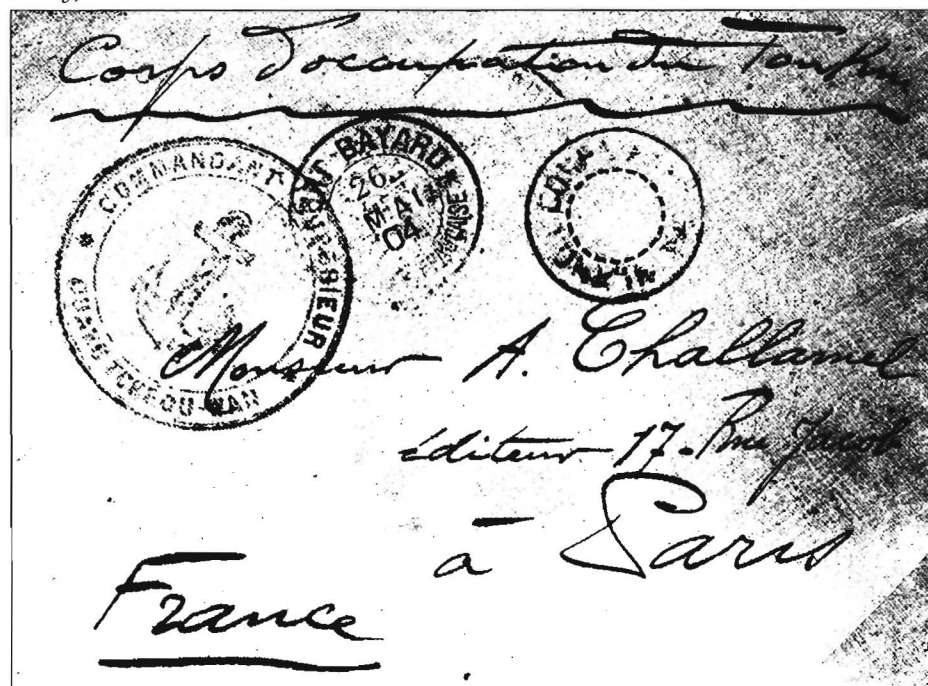 Corps d'occupation du Tonkin
* COMMANDANT SUPERIEUR *
QUANG TCHEOU-WAN
FORT-BAYARD
26
MAI
04
Monsieur A. Challamel
éditeur 17. Rue Jacob
à Paris
France